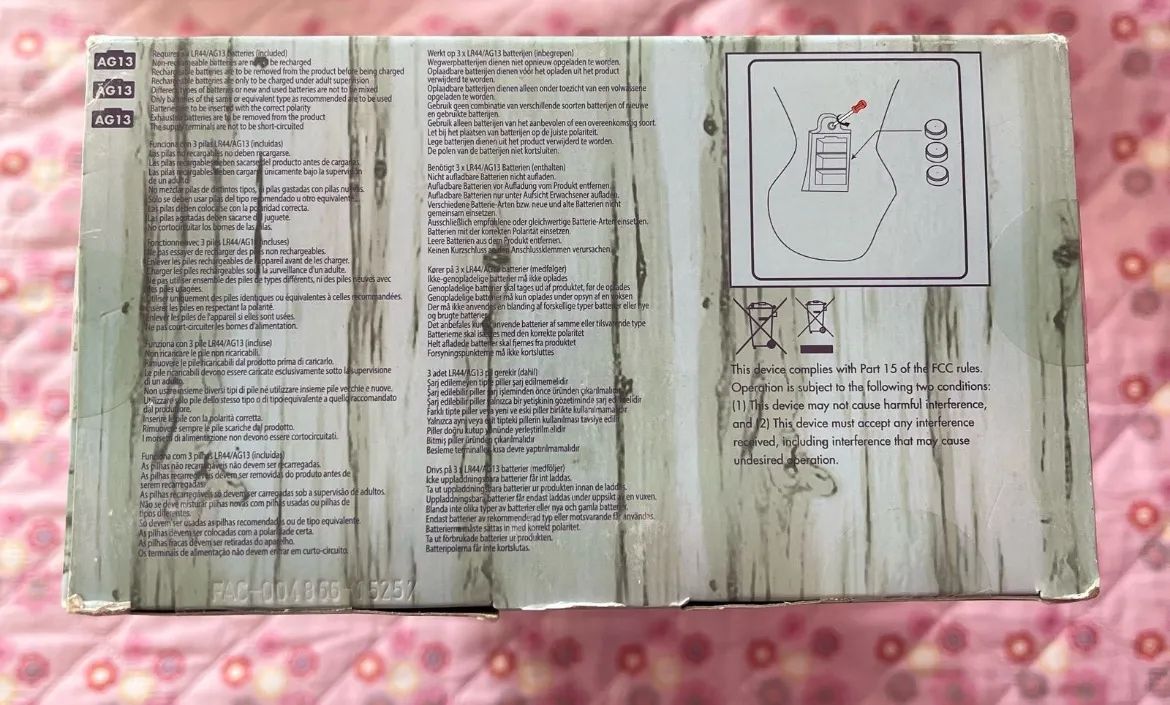 AG13
AG13
AG13
Requires 3 x LR44/AG13 batteries (included)
Non-rechargeable batteries are not to be recharged
Rechargeable batteries are to be removed from the product before being charged
Rechargeable batteries are only to be charged under adult supervision
Different types of batteries or new and used batteries are not to be mixed
Only batteries of the same or equivalent type as recommended are to be used
Batteries are to be inserted with the correct polarity
Exhausted batteries are to be removed from the product
The supply terminals are not to be short-circuited
Funciona con 3 pilas LR44/AG13 (incluidas)
Las pilas no recargables no deben recargarse.
Las pilas recargables deben sacarse del producto antes de cargarlas.
Las pilas recargables deben cargarse únicamente bajo la supervisión
de un adulto
No mezclar pilas de distintos tipos, ni pilas gastadas con pilas nuevas.
Sólo se deben usar pilas del tipo recomendado u otro equivalente.
Las pilas deben colocarse con la polaridad correcta.
Las pilas agotadas deben sacarse del juguete.
No cortocircuitar los bornes de las pilas.
Fonctionne avec 3 piles LR44/AG13 (incluses)
Ne pas essayer de recharger des piles non rechargeables.
Enlever les piles rechargeables de l'appareil avant de les charger.
Charger les piles rechargeables sous la surveillance d'un adulte.
Ne pas utiliser ensemble des piles de types différents, ni des piles neuves avec
des piles usagées.
Utiliser uniquement des piles identiques ou équivalentes à celles recommandées.
Insérer les piles en respectant la polarité.
Enlever les piles de l'appareil si elles sont usées.
Ne pas court-circuiter les bornes d'alimentation.
Funziona con 3 pile LR44/AG13 (incluse)
Non ricaricare le pile non ricaricabili.
Rimuovere le pile ricaricabili dal prodotto prima di caricarlo.
Le pile ricaricabili devono essere caricate esclusivamente sotto la supervisione
di un adulto.
Non usare insieme diversi tipi di pile né utilizzare insieme pile vecchie e nuove.
Utilizzare solo pile dello stesso tipo o di tipo equivalente a quello raccomandato
dal produttore.
Inserire le pile con la polarità corretta.
Rimuovere sempre le pile scariche dal prodotto.
I morsetti di alimentazione non devono essere cortocircuitati.
Funciona com 3 pilhas LR44/AG13 (incluídas)
As pilhas não recarregáveis não devem ser recarregadas.
As pilhas recarregáveis devem ser removidas do produto antes de
serem recarregadas
As pilhas recarregáveis só devem ser carregadas sob a supervisão de adultos.
Não se deve misturar pilhas novas com pilhas usadas ou pilhas de
tipos diferentes.
Só devem ser usadas as pilhas recomendadas ou de tipo equivalente.
As pilhas devem ser colocadas com a polaridade certa.
As pilhas fracas devem ser retiradas do aparelho.
Os terminais de alimentação não devem entrar em curto-circuito.
FAC-004866 15257
Werkt op 3 x LR44/AG13 batterijen (inbegrepen)
Wegwerpbatterijen dienen niet opnieuw opgeladen te worden.
Oplaadbare batterijen dienen vóór het opladen uit het product
verwijderd te worden.
Oplaadbare batterijen dienen alleen onder toezicht van een volwassene
opgeladen te worden.
Gebruik geen combinatie van verschillende soorten batterijen of nieuwe
en gebruikte batterijen.
Gebruik alleen batterijen van het aanbevolen of een overeenkomstig soort.
Let bij het plaatsen van batterijen op de juiste polariteit.
Lege batterijen dienen uit het product verwijderd te worden.
De polen van de batterijen niet kortsluiten.
Benötigt 3 x LR44/AG13 Batterien (enthalten)
Nicht aufladbare Batterien nicht aufladen.
Aufladbare Batterien vor Aufladung vom Produkt entfernen.
Aufladbare Batterien nur unter Aufsicht Erwachsener aufladen.
Verschiedene Batterie-Arten bzw. neue und alte Batterien nicht
gemeinsam einsetzen.
Ausschließlich empfohlene oder gleichwertige Batterie-Arten einsetzen.
Batterien mit der korrekten Polarität einsetzen.
Leere Batterien aus dem Produkt entfernen.
Keinen Kurzschluss an den Anschlussklemmen verursachen.
Kører på 3 x LR44/AG13 batterier (medfølger)
Ikke-genopladelige batterier må ikke oplades
Genopladelige batterier skal tages ud af produktet, før de oplades
Genopladelige batterier må kun oplades under opsyn af en voksen
Der må ikke anvendes en blanding af forskellige typer batterier eller nye
og brugte batterier
Det anbefales kun at anvende batterier af samme eller tilsvarende type
Batterierne skal isættes med den korrekte polaritet
Helt afladede batterier skal fjernes fra produktet
Forsyningspunkterne må ikke kortsluttes
3 adet LR44/AG13 pil gerekir (dahil)
Şarj edilemeyen tipte piller şarj edilmemelidir
Şarj edilebilir piller şarj işleminden önce üründen çıkarılmalıdır
Şarj edilebilir piller yalnızca bir yetişkinin gözetiminde şarj edilmelidir
Farklı tipte piller veya yeni ve eski piller birlikte kullanılmamalıdır
Yalnızca aynı veya eşit tipteki pillerin kullanılması tavsiye edilir
Piller doğru kutup yönünde yerleştirilmelidir
Bitmiş piller üründen çıkarılmalıdır
Besleme terminalleri kısa devre yaptırılmamalıdır
Drivs på 3 x LR44/AG13 batterier (medföljer)
Icke uppladdningsbara batterier får int laddas.
Ta ut uppladdningsbara batterier ur produkten innan de laddas.
Uppladdningsbara batterier får endast laddas under uppsikt av en vuxen.
Blanda inte olika typer av batterier eller nya och gamla batterier.
Endast batterier av rekommenderad typ eller motsvarande får användas.
Batterierna måste sättas in med korrekt polaritet.
Ta ut förbrukade batterier ur produkten.
Batteripolerna får inte kortslutas.
This device complies with Part 15 of the FCC rules.
Operation is subject to the following two conditions:
(1) This device may not cause harmful interference,
and (2) This device must accept any interference
received, including interference that may cause
undesired operation.